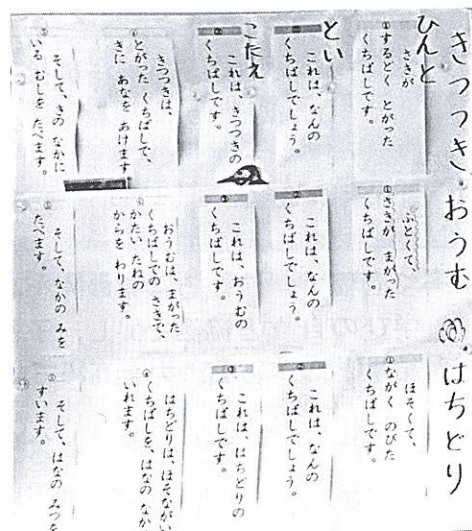 きつつき・おうむ・はちどり
ひんと
①さきが
するどく とがった
くちばしです。
ふとくて、
①さきが まがった
くちばしです。
ほそくて、
①ながく のびた
くちばしです。
とい
これは、なんの
くちばしでしょう。
これは、なんの
くちばしでしょう。
これは、なんの
くちばしでしょう。
こたえ
これは、きつつきの
くちばしです。
これは、おうむの
くちばしです。
これは、はちどりの
くちばしです。
きつつきは、
とがった くちばしで、
きに あなを あけます
おうむは、まがった
くちばしでの さきで、
かたい たねの
からを わります。
はちどりは、ほそながい
くちばしを、はなの なか
いれます。
そして、きの なかに
いる むしを たべます。
そして、なかの みを
たべます。
そして、はなの みつを
すいます。